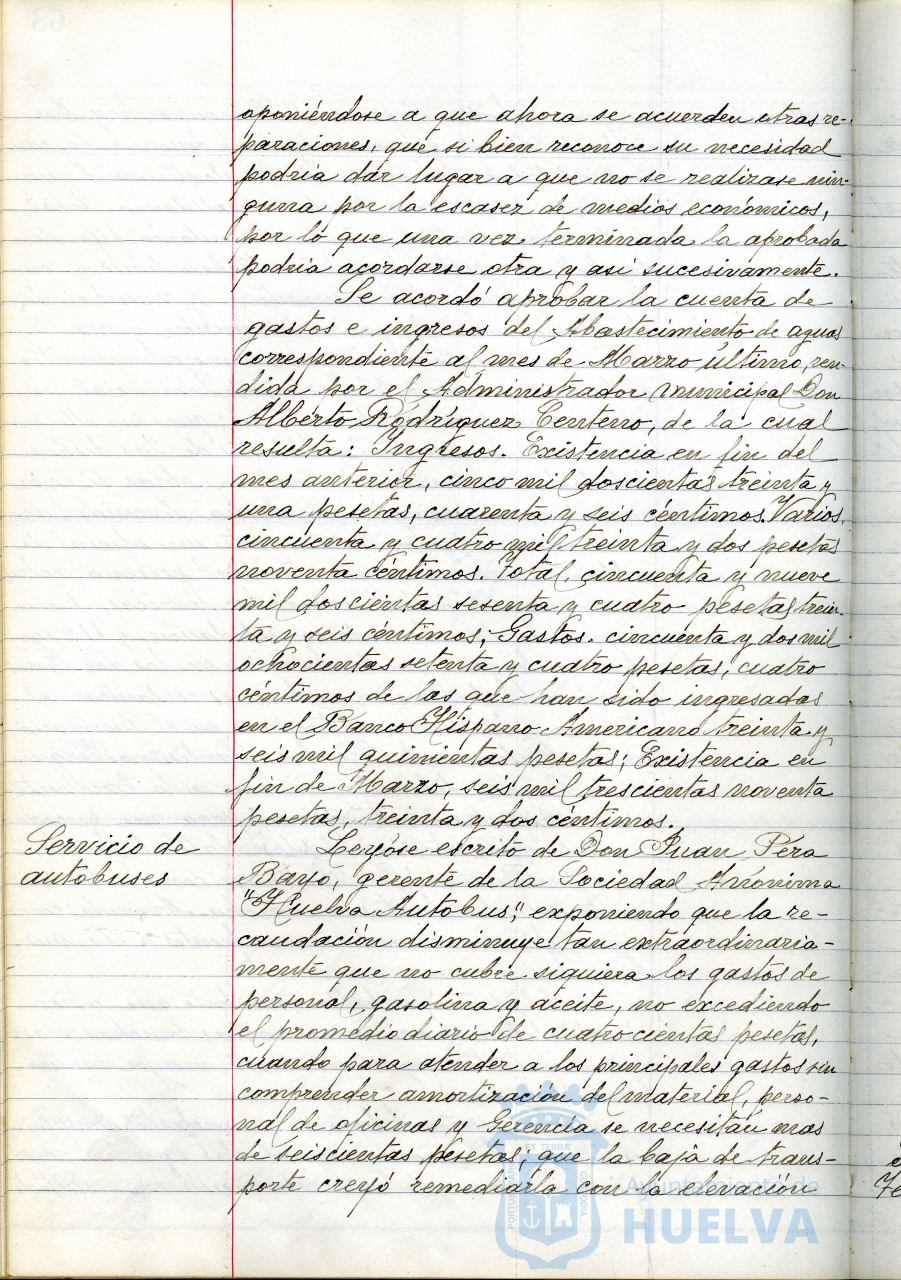 oponiéndose a que ahora se acuerden otras re-
paraciones, que si bien reconoce su necesidad
podria dar lugar a que no se realizase nin-
guna por la escasez de medios económicos,
por lo que una vez terminada la aprobada
podria acordarse otra y asi sucesivamente.
Se acordó aprobar la cuenta de
gastos e ingresos del Abastecimiento de aguas
correspondiente al mes de Marzo último, ren-
dida por el Administrador municipal Don
Alberto Rodríguez Centeno, de la cual
resulta: Ingresos. Existencia en fin del
mes anterior, cinco mil doscientas treinta y
una pesetas, cuarenta y seis céntimos. Varios,
cincuenta y cuatro mil treinta y dos pesetas
noventa céntimos. Total, cincuenta y nueve
mil doscientas sesenta y cuatro pesetas trein-
ta y seis céntimos; Gastos. cincuenta y dos mil
ochocientas setenta y cuatro pesetas, cuatro
céntimos de las que han sido ingresadas
en el Banco Hispano Americano treinta y
seis mil quinientas pesetas; Existencia en
fin de Marzo, seis mil trescientas noventa
pesetas, treinta y dos centimos.
Servicio de
autobuses
Leyóse escrito de Don Juan Pera
Bayo, gerente de la Sociedad Anónima
"Huelva Autobus", exponiendo que la re-
caudación disminuye tan extraordinaria-
mente que no cubre siquiera los gastos de
personal, gasolina y aceite, no excediendo
el promedio diario de cuatrocientas pesetas,
cuando para atender a los principales gastos sin
comprender amortización del material, perso-
nal de oficinas y Gerencia se necesitan mas
de seiscientas pesetas; que la baja de trans-
porte creyó remediarla con la elevación
Ayuntamiento de
HUELVA